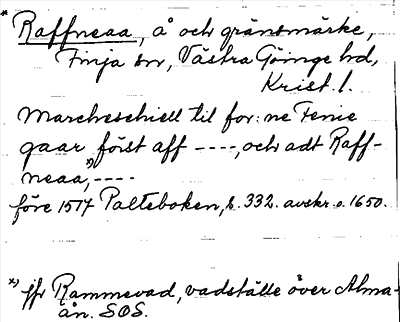 * Raffneaa, å och gränsmärke,
Finja sn, Västra Göinge hd,
Krist. l.
Marcheschiell til for:ne Fenie
gaar först aff ----, och adt Raff-
neaa,*) ----
före 1577 Palteboken, s. 332. avskr. o. 1650.
*) jfr Rammevad, vadställe över Alma-
ån. SOS.